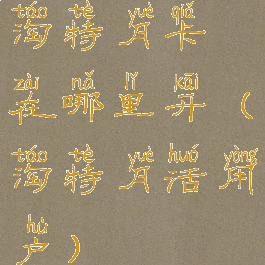 táo tè yuè qiǎ
淘特月卡
zài nǎ lǐ kāi
在哪里开（
táo tè yuè huó yòng
淘特月活用
hù
户）